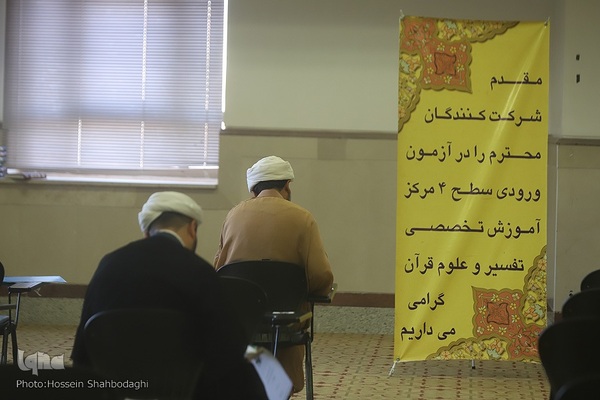 مقدم
شرکت کنندگان
محترم را در آزمون
ورودی سطح ۴ مرکز
آموزش تخصصی
تفسیر و علوم قرآن
گرامی
می داریم
iqna
Photo:Hossein Shahbodaghi